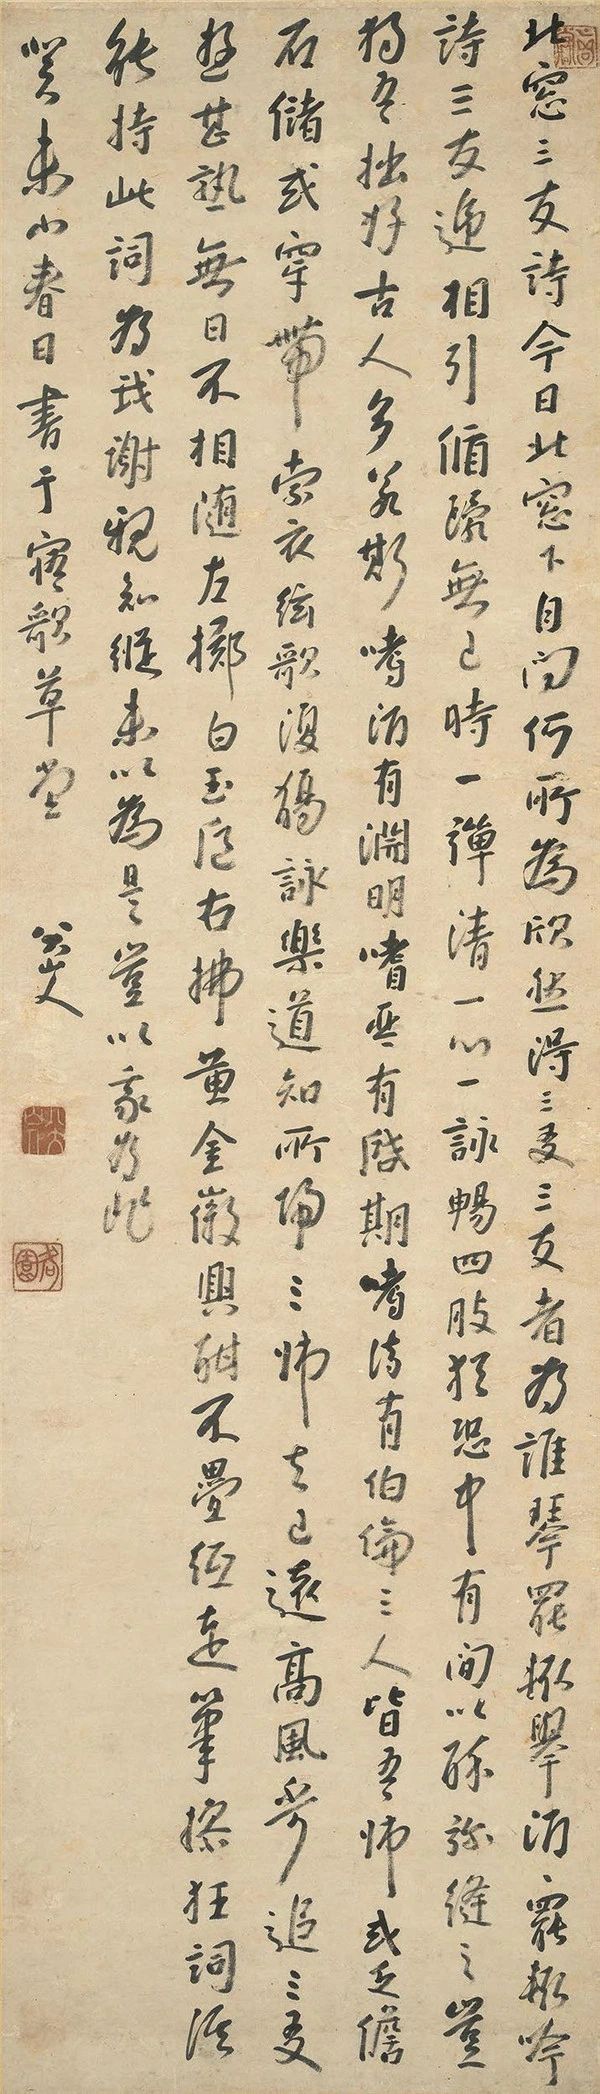 北窓三友詩今日北窓下自問何所為欣然得三友三友者為誰琴罷輒舉酒、罷輒吟
詩三友遞相引循環無已時一彈清一心一詠暢四肢猶恐中有間以酔弥縫之豈
獨吾拙好古人多若斯嗜酒有淵明嗜琴有啟期嗜詩有伯倫三人皆吾師或乏儋
石儲或穿帶索衣弦歌復觴詠樂道知所歸三師去已遠高風追三友
遊甚熟無日不相隨左擲白玉卮右拂黃金徽興酣不疊紙走筆操狂詞誰
能持此詞為我謝親知縱未以為是豈以我為非
癸未小春日書于寤歌草堂
八大山人